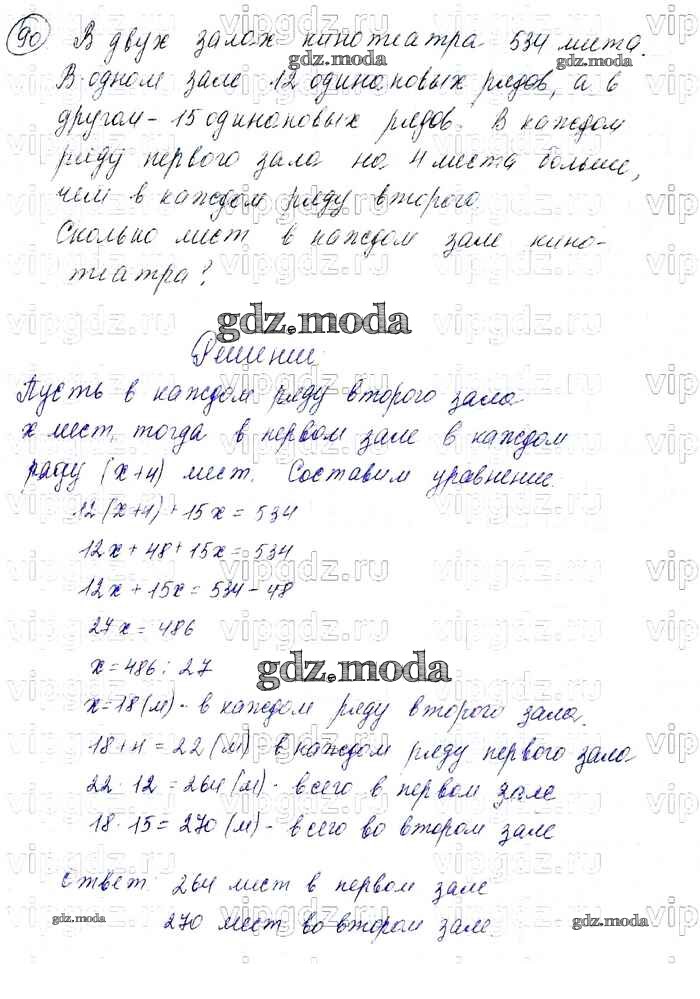 90 В двух залах кинотеатра 534 места.
В одном зале 12 одинаковых рядов, а в
другом - 15 одинаковых рядов. В каждом
ряду первого зала на 4 места больше,
чем в каждом ряду второго.
Сколько мест в каждом зале кино-
театра?
gdz.moda
Решение
Пусть в каждом ряду второго зала
x мест, тогда в первом зале в каждом
ряду (x+4) мест. Составим уравнение
12(x+4)+15x=534
12x+48+15x=534
12x+15x=534-48
27x=486
x=486:27
gdz.moda
x=18(м)- в каждом ряду второго зала.
18+4=22(м)- в каждом ряду первого зала
22·12=264(м)- всего в первом зале
18·15=270(м)- всего во втором зале
Ответ 264 мест в первом зале
270 мест во втором зале.
gdz.moda gdz.moda gdz.moda
vipgdz.ru